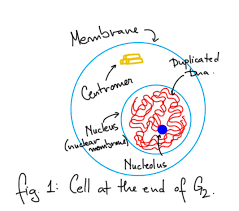 Membrane
Duplicated
Dna.
Centromer
Nucleus
(nuclear membrane)
Nucleolus
fig. 1: Cell at the end of G2.